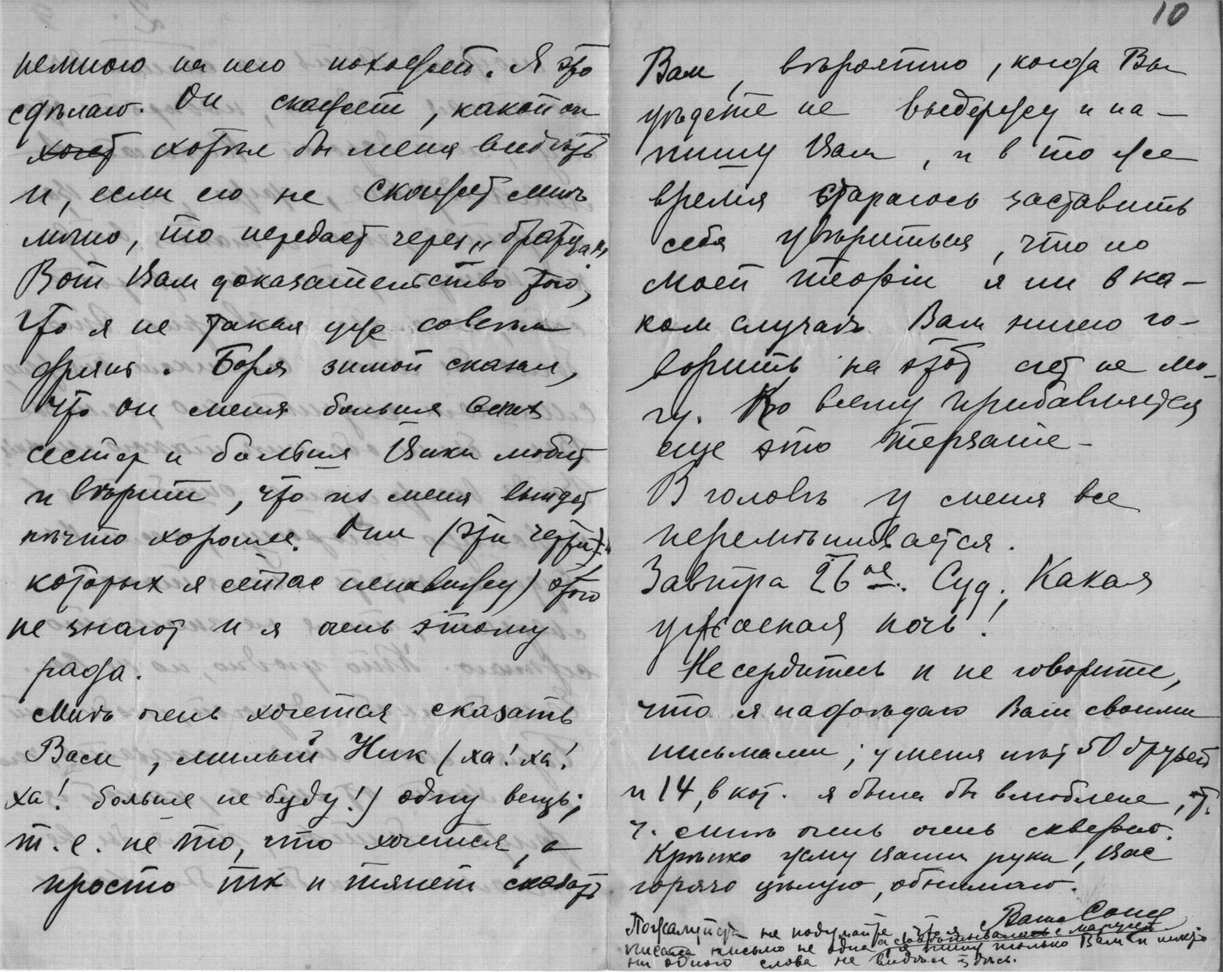 немного на него походит. Я это
сдѣлаю. Он скажет, какой он
хочет хотѣл бы меня видѣть
и, если его не скажет мнѣ
лично, то передаст через „братца".
Вот Вам доказательство того,
что я не такая уже совсѣм
дрянь. Боря зимой сказал,
что он меня больше всѣх
сестер и больше Вики любит
и вѣрит, что из меня выйдет
нѣчто хорошее. Они (эти черти,
которых я сейчас ненавижу) этого
не знают и я очень этому
рада.
Мнѣ очень хочется сказать
Вам, милый Ник (ха! ха!
ха! больше не буду!) одну вещь;
т. е. не то, что хочется, а
просто так и тянет сказать
10
Вам, вѣроятно, когда Вы
уѣдете не выдержу и на-
пишу Вам, и в то же
время стараюсь заставить
себя увѣриться, что по
моей теоріи я ни в ка-
ком случаѣ Вам ничего го-
ворить на этот счет не мо-
гу. Ко всему прибавляется
еще это терзаніе-
В головѣ у меня все
перемѣшивается.
Завтра 26ое. Суд. Какая
ужасная ночь!
Не сердитесь и не говорите,
что я надоѣдаю Вам своими
письмами; у меня нѣт 50 друзей
и 14, в кот. я была бы влюблена, т.
ч. мнѣ очень очень скверно.
Крѣпко жму Ваши руки, Вас
горячо цѣлую, обнимаю.
Ваша Соня
Пожалуйста не подумайте, что я
писала письмо не одна а совѣтывалась с Марусей
я пишу только Вам и никто
ни одного слова не видѣл здѣсь.